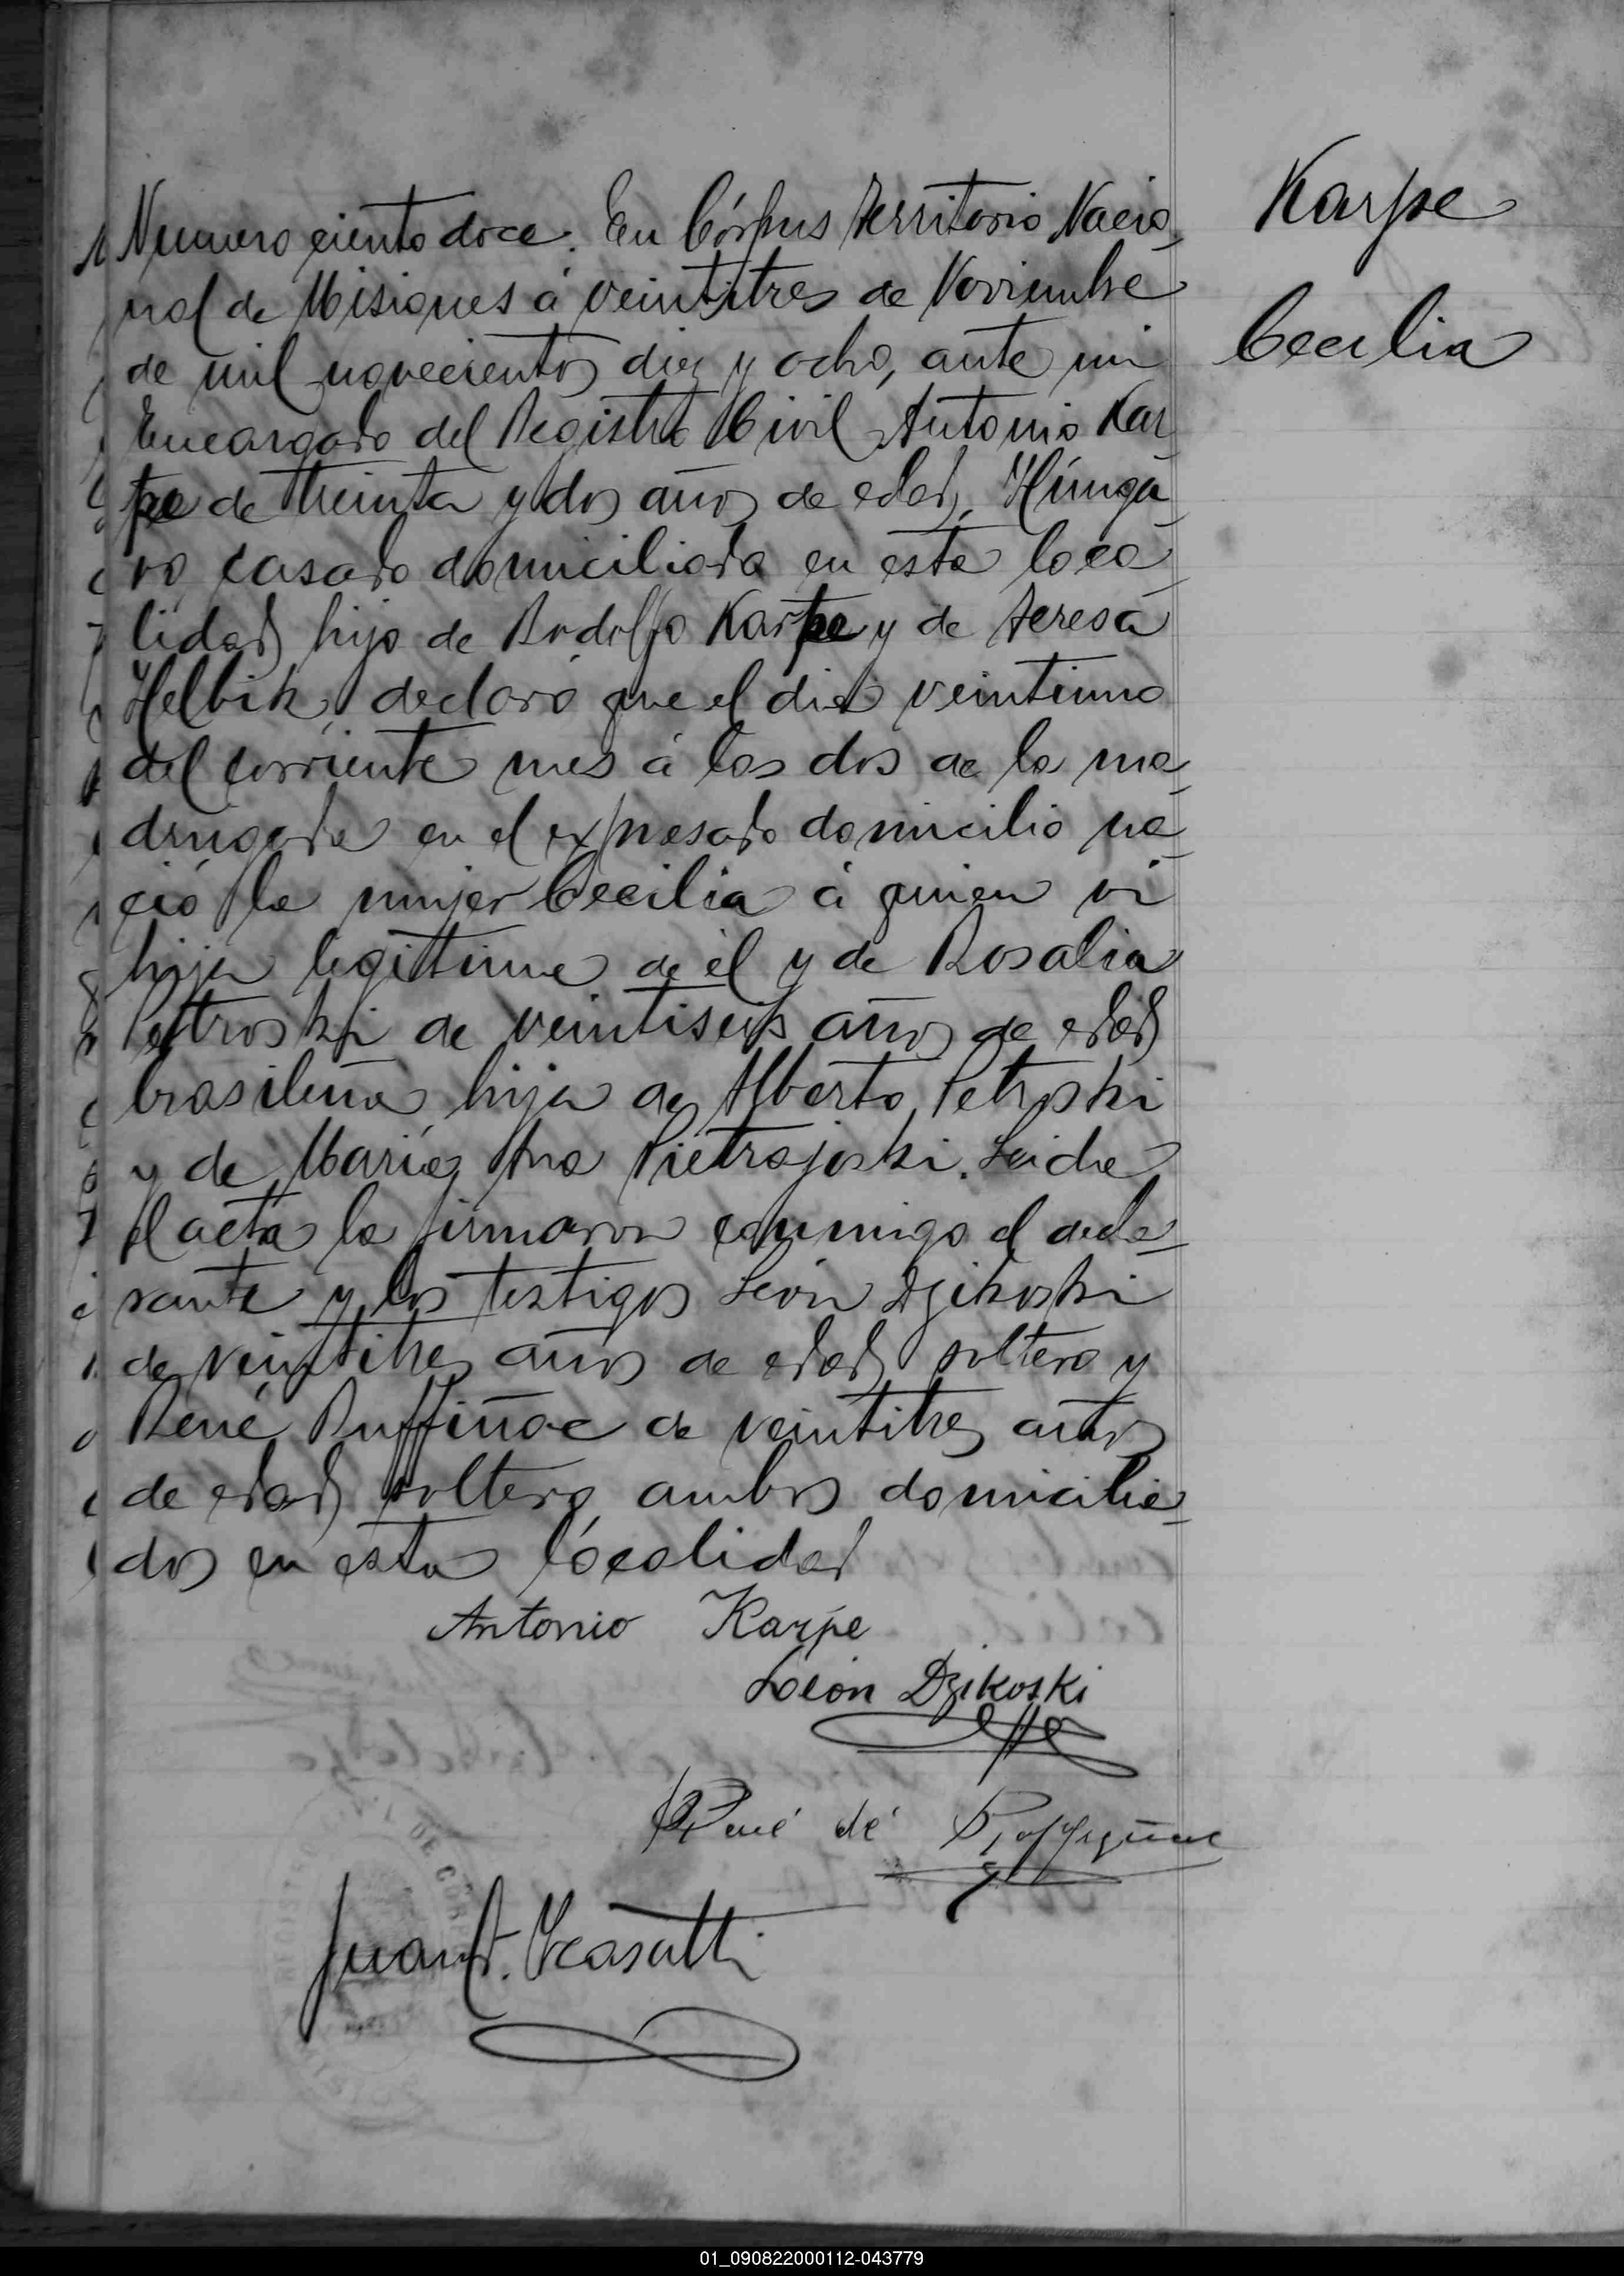 Karpe
Cecilia
Numero ciento doce. En Córpus Territorio Nacio_
nal de Misiones á veintitres de Noviembre
de mil novecientos diez y ocho, ante mi
Encargado del Registro Civil Antonio Kar_
pe de treinta y dos años de edad, Húnga_
ro, casado domiciliado en esta loca_
lidad, hijo de Rodolfo Karpe y de Teresa
Helbik, declaró que el dia veintiuno
del corriente mes á las dos de la ma_
drugada en el expresado domicilio na_
ció la mujer Cecilia á quien vi
hija legitima de él y de Rosalia
Petroski de veintiseis años de edad
brasileña hija de Alberto Petroski
y de Maria Ana Pietrajoski. Leida
el acta la firmaron conmigo el decla_
rante y los testigos León Dzikoski
de veintitres años de edad soltero y
René Ruffiñac de veintitres años
de edad soltero ambos domicilia_
dos en esta localidad
Antonio Karpe
León Dzikoski
René de
Juan
01_090822000112-043779